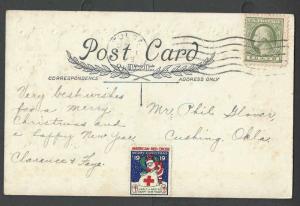 Post Card
CORRESPONDENCE
ADDRESS ONLY
Very best wishes
for a merry
Christmas and
a happy New Year.
Clarence & Faye.
Mr. Phil Glover,
Cushing, Okla.
AMERICAN RED CROSS
19 19